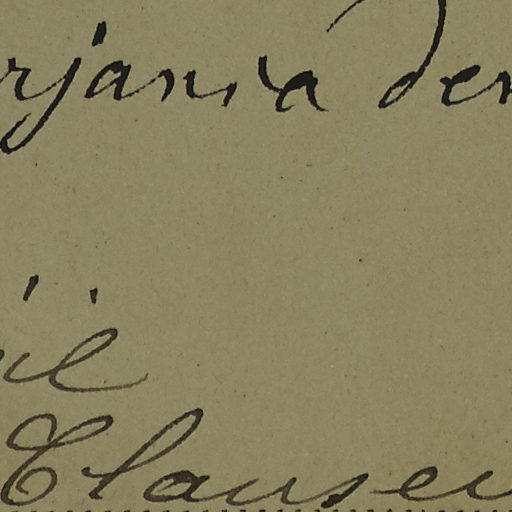 rjania den
il
Clausen